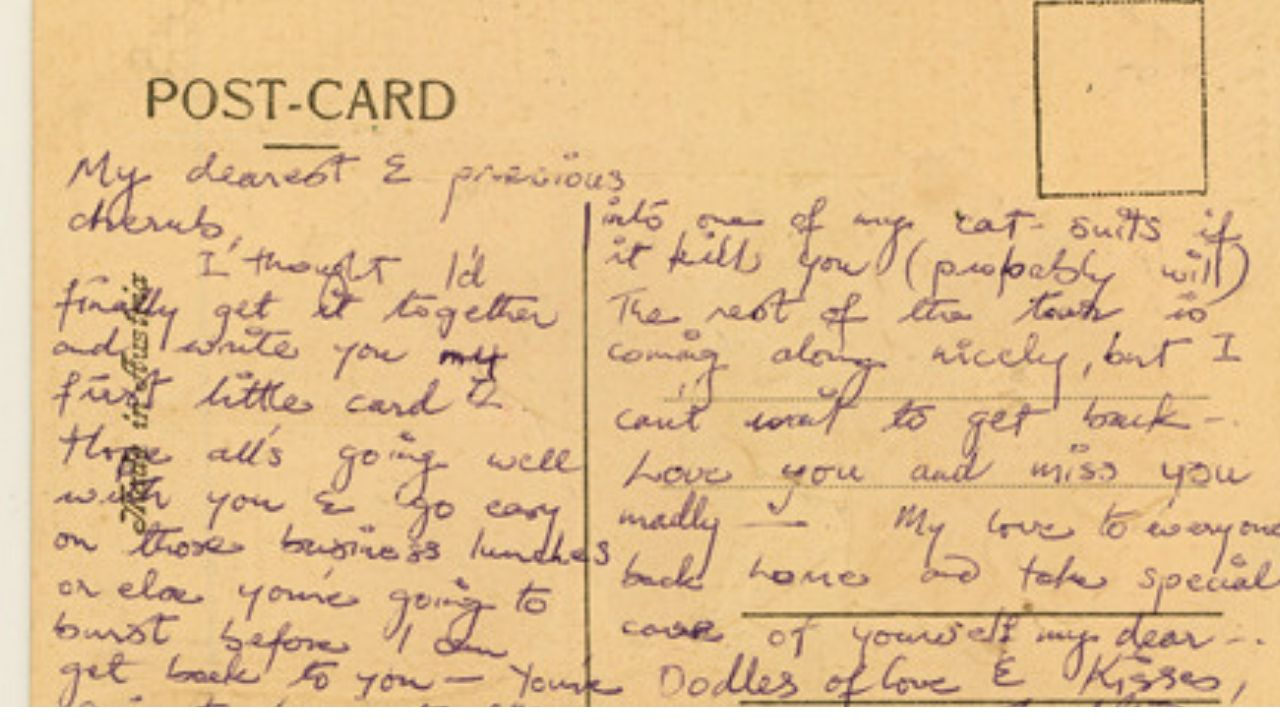 POST-CARD
My dearest & precious
cherub,
I thought I'd
finally get it together
and write you my
first little card
Hope all's going well
with you & go easy
on those business lunches
or else you're going to
burst before I can
get back to you — You're
into one of my cat-suits if
it kills you (probably will)
The rest of the tour is
coming along nicely, but I
can't wait to get back -.
Love you and miss you
madly — My love to everyone
back home and take special
care of yourself my dear -..
Oodles of love & Kisses,
Made in Austria